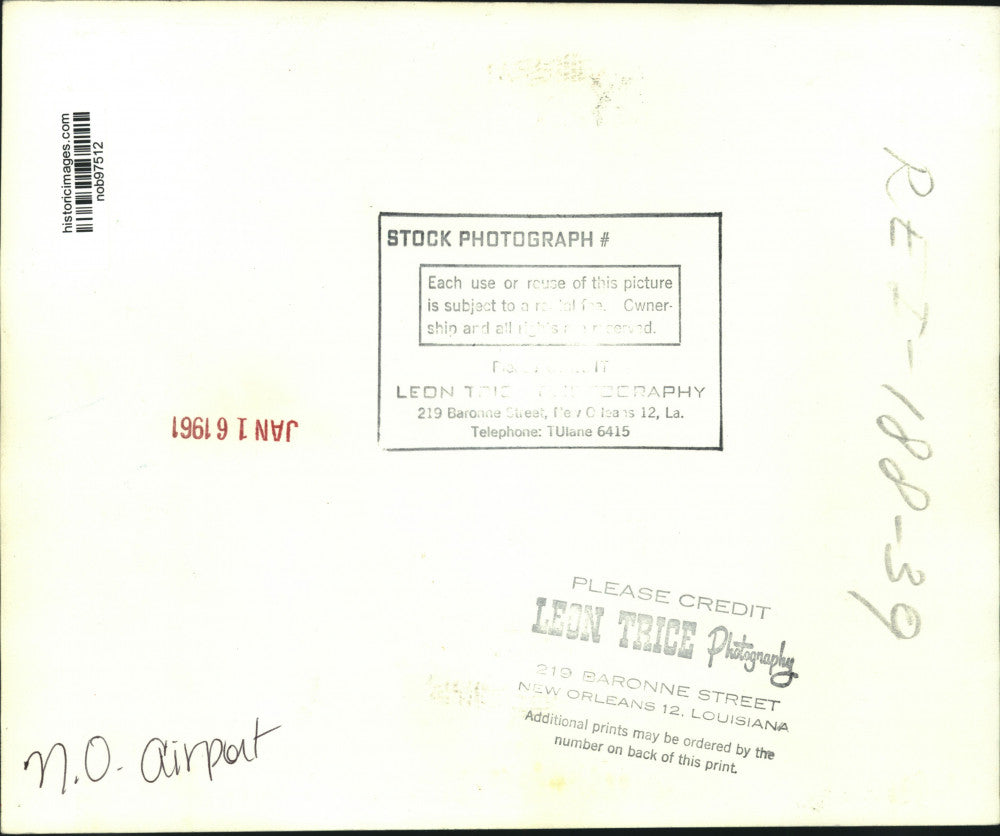 historicimages.com
nob97512
STOCK PHOTOGRAPH #
Each use or reuse of this picture
is subject to a rental fee. Owner-
ship and all rights are reserved.
LEON TRICE PHOTOGRAPHY
219 Baronne Street, New Orleans 12, La.
Telephone: TUlane 6415
JAN 16 1961
RET-188-39
PLEASE CREDIT
LEON TRICE Photography
219 BARONNE STREET
NEW ORLEANS 12, LOUISIANA
Additional prints may be ordered by the
number on back of this print.
N.O. Airport